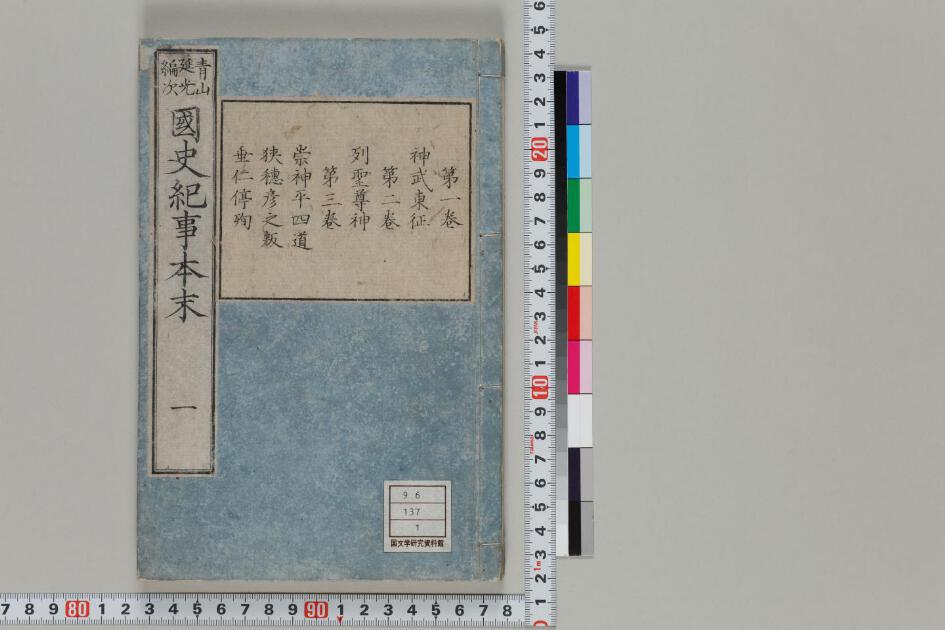 青山
延光
編次
國史紀事本末
一
第一卷
神武東征
第二卷
列聖尊神
第三卷
崇神平四道
狹穗彥之叛
垂仁停殉
96
137
1
国文学研究資料館